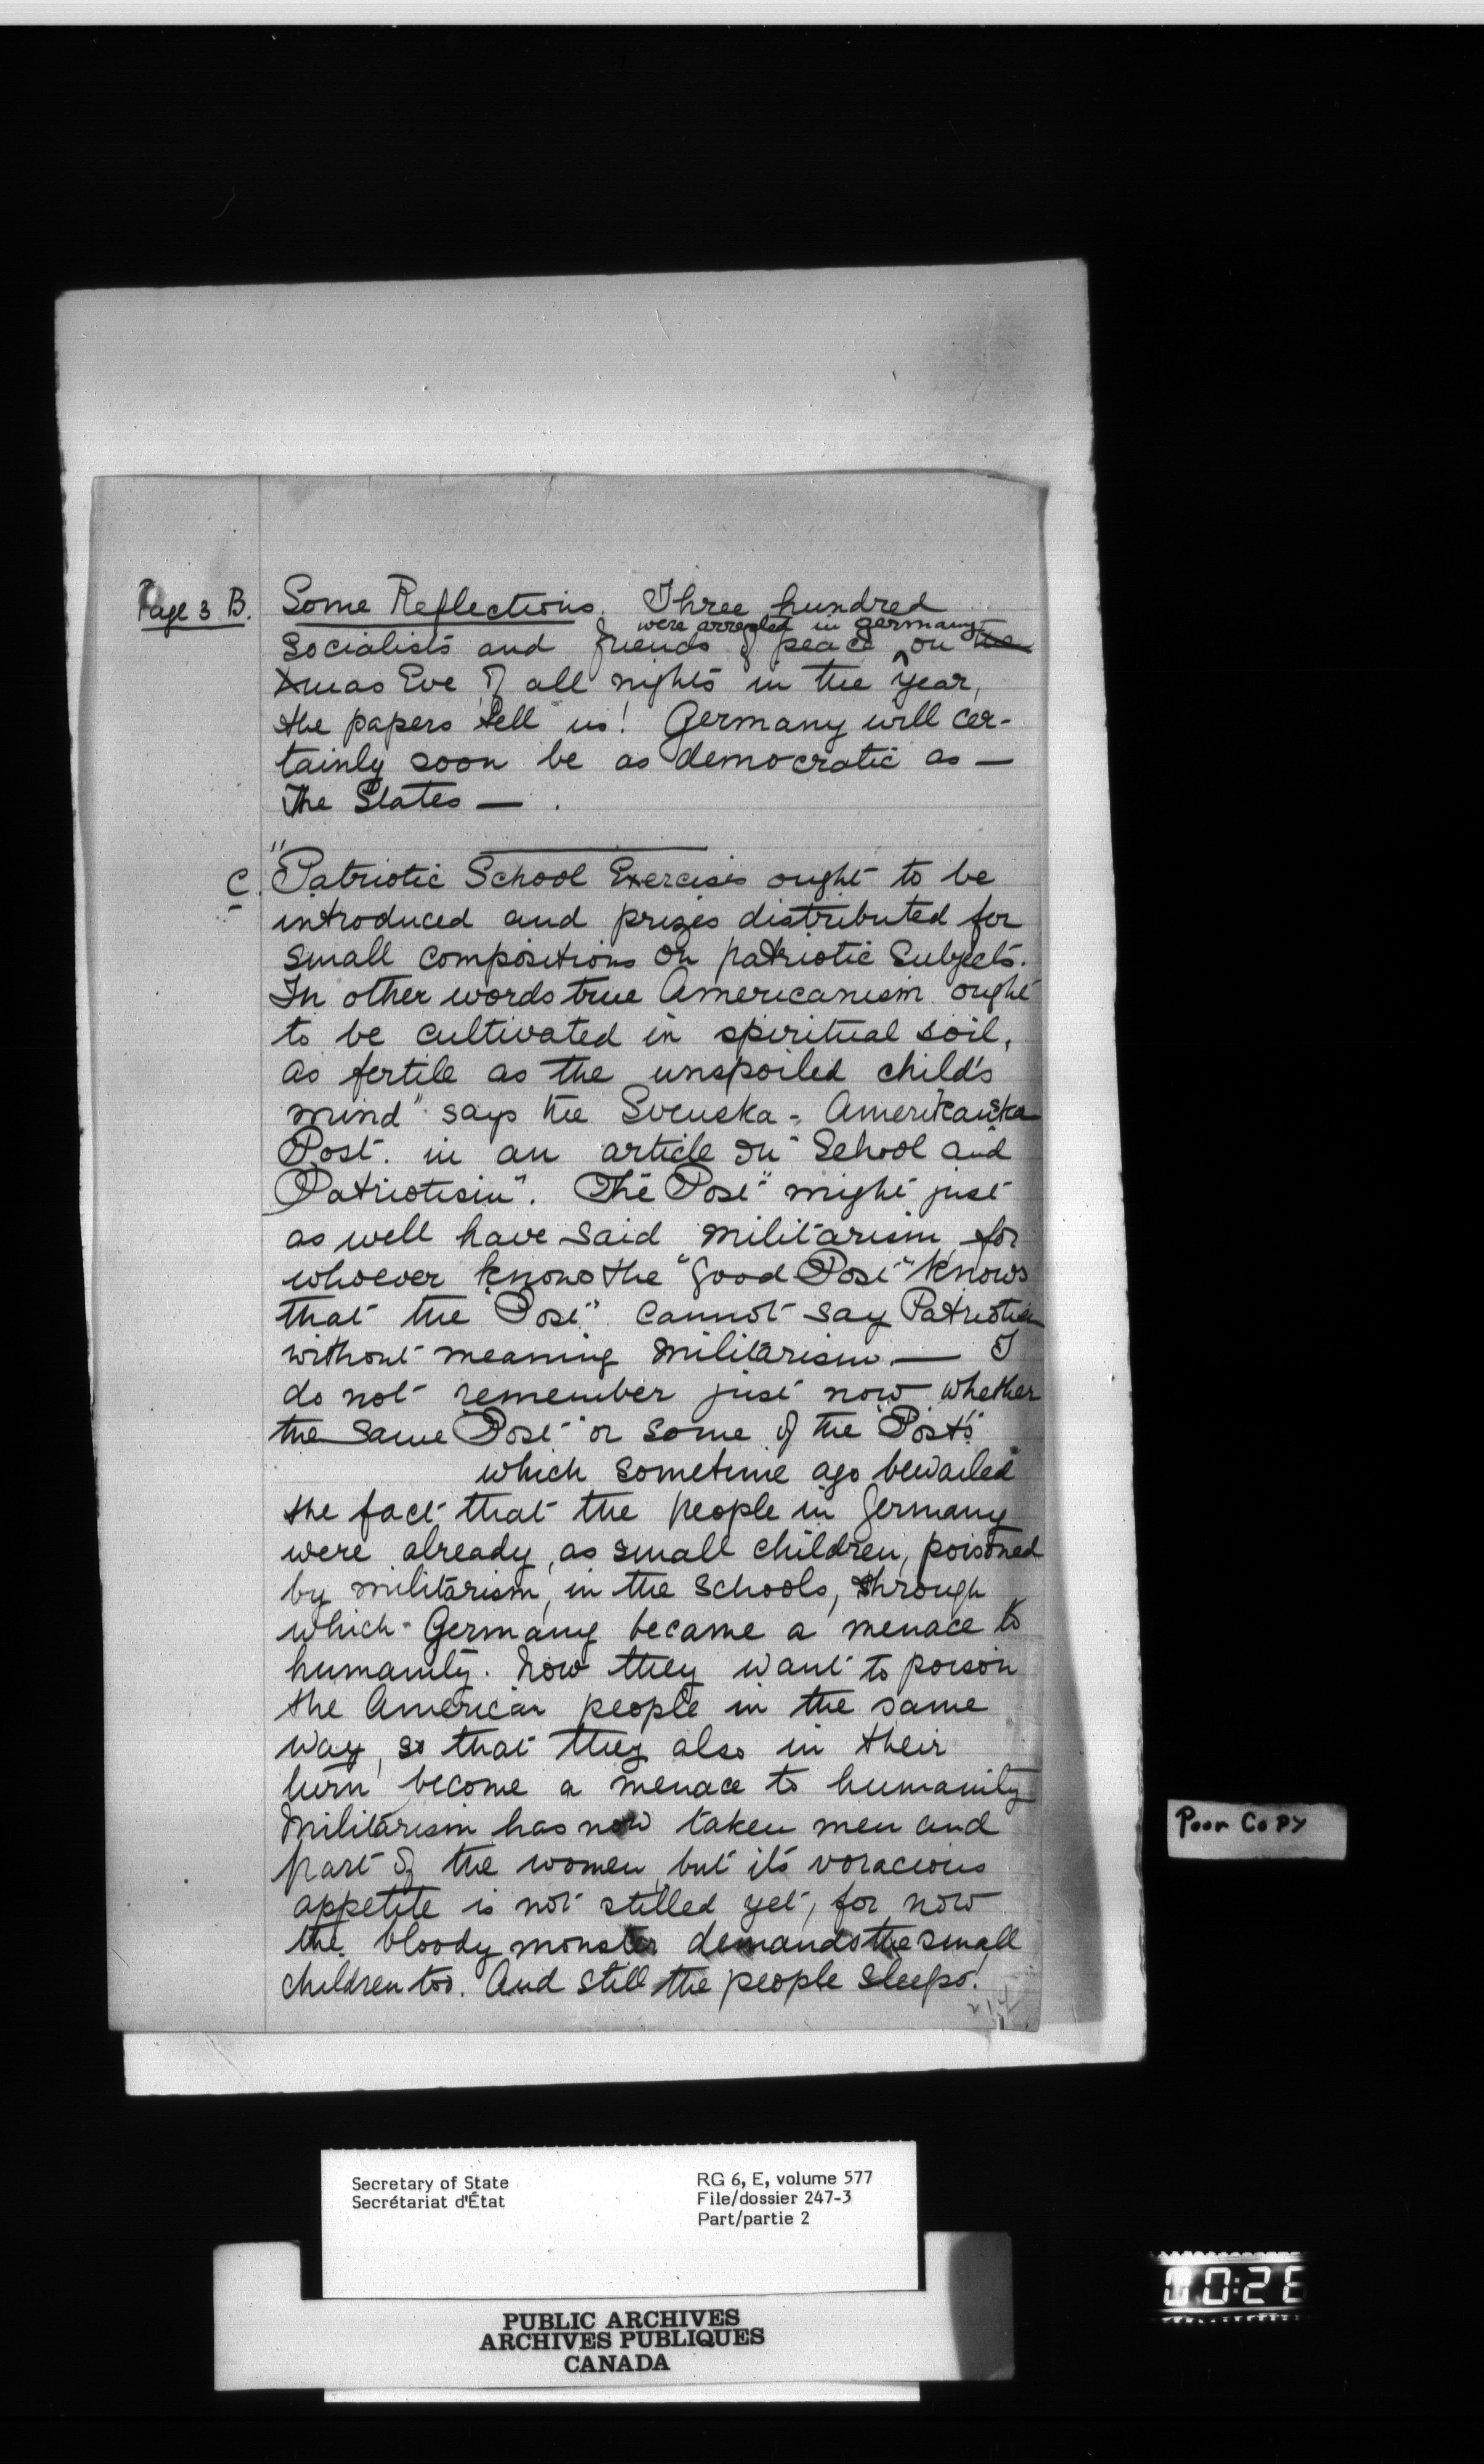 Page 3 B. Some Reflections. Three hundred
Socialists and friends of peace were arrested in Germany on the
Xmas Eve of all nights in the year,
the papers tell us! Germany will cer-
tainly soon be as democratic as —
The States — .
C. "Patriotic School Exercises ought to be
introduced and prizes distributed for
small compositions on patriotic Subjects.
In other words true Americanism ought
to be cultivated in spiritual soil,
as fertile as the unspoiled child's
mind" says the Svenska - Amerikanska
Post. in an article on "School and
Patriotism". The "Post" might just
as well have said militarism for
whoever knows the "good Post" knows
that the "Post" cannot say Patriotism
without meaning militarism. — I
do not remember just now whether
the same "Post" or some of the "Posts"
which sometime ago bewailed
the fact that the people in Germany
were already, as small children, poisoned
by militarism, in the schools, through
which Germany became a menace to
humanity. Now they want to poison
the American people in the same
way, so that they also in their
turn become a menace to humanity
Militarism has now taken men and
part of the women, but its voracious
appetite is not stilled yet, for now
the bloody monster demands the small
children too. And still the people sleeps!
Poor Copy
Secretary of State
Secrétariat d'État
RG 6, E, volume 577
File/dossier 247-3
Part/partie 2
PUBLIC ARCHIVES
ARCHIVES PUBLIQUES
CANADA